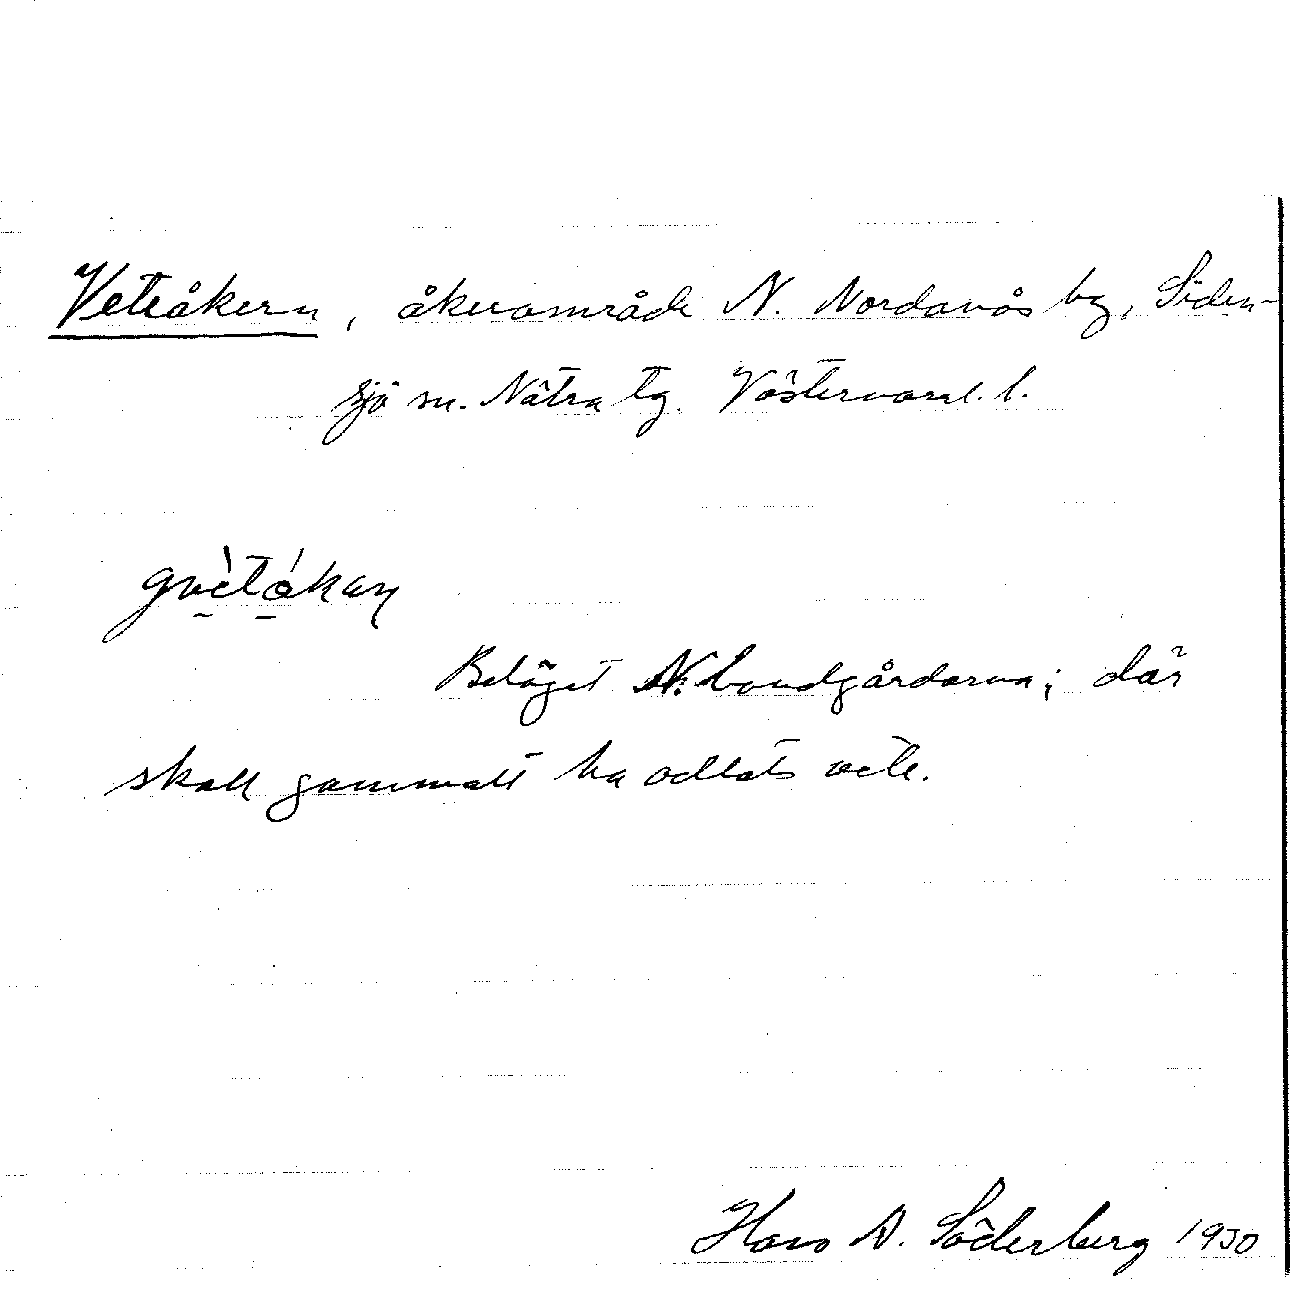 Veteåkern, åkerområde N. Nordanås by, Siden-
sjö sn. Nätra tg. Västernorrl. l.
gvètákaɳ
Beläget N. bondgårdarna; där
skall gammalt ha odlats vete.
Hans A. Söderberg 1930